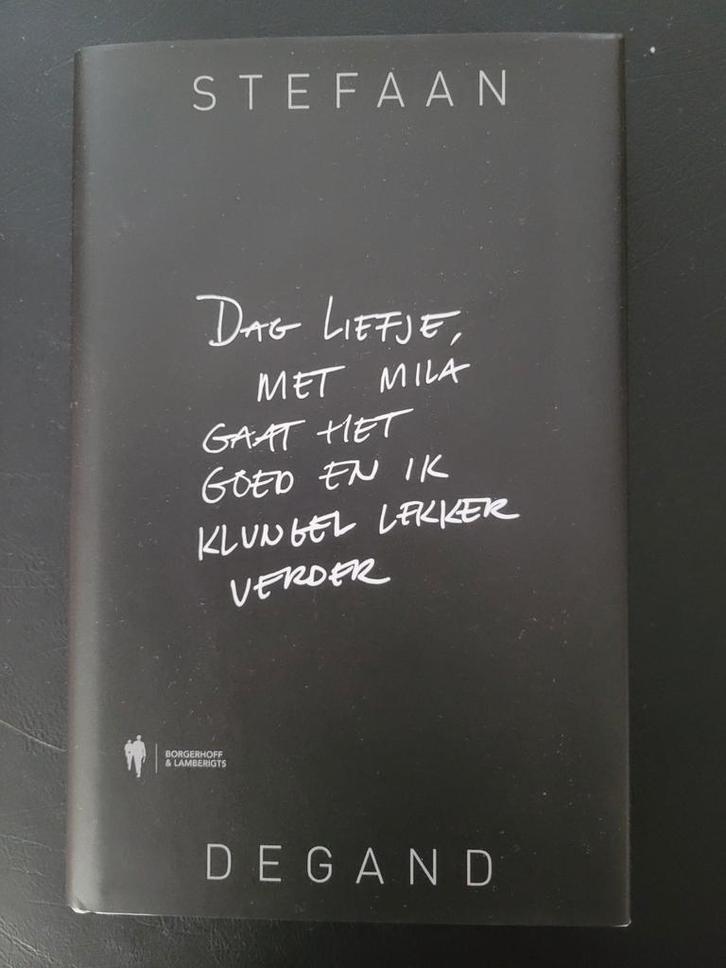 STEFAAN
DAG LIEFJE,
MET MILA
GAAT HET
GOED EN IK
KLUNGEL LEKKER
VERDER
BORGERHOFF
& LAMBERIGTS
DEGAND